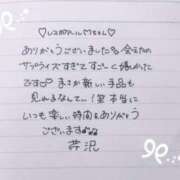 ありがとうございました。会えたの
サプライズすぎてすごーく嬉しかった
です♡ まさか新しい手品も
見れるなんて…!笑 本当に
いつも楽しい時間をありがとう
ございます
芹沢